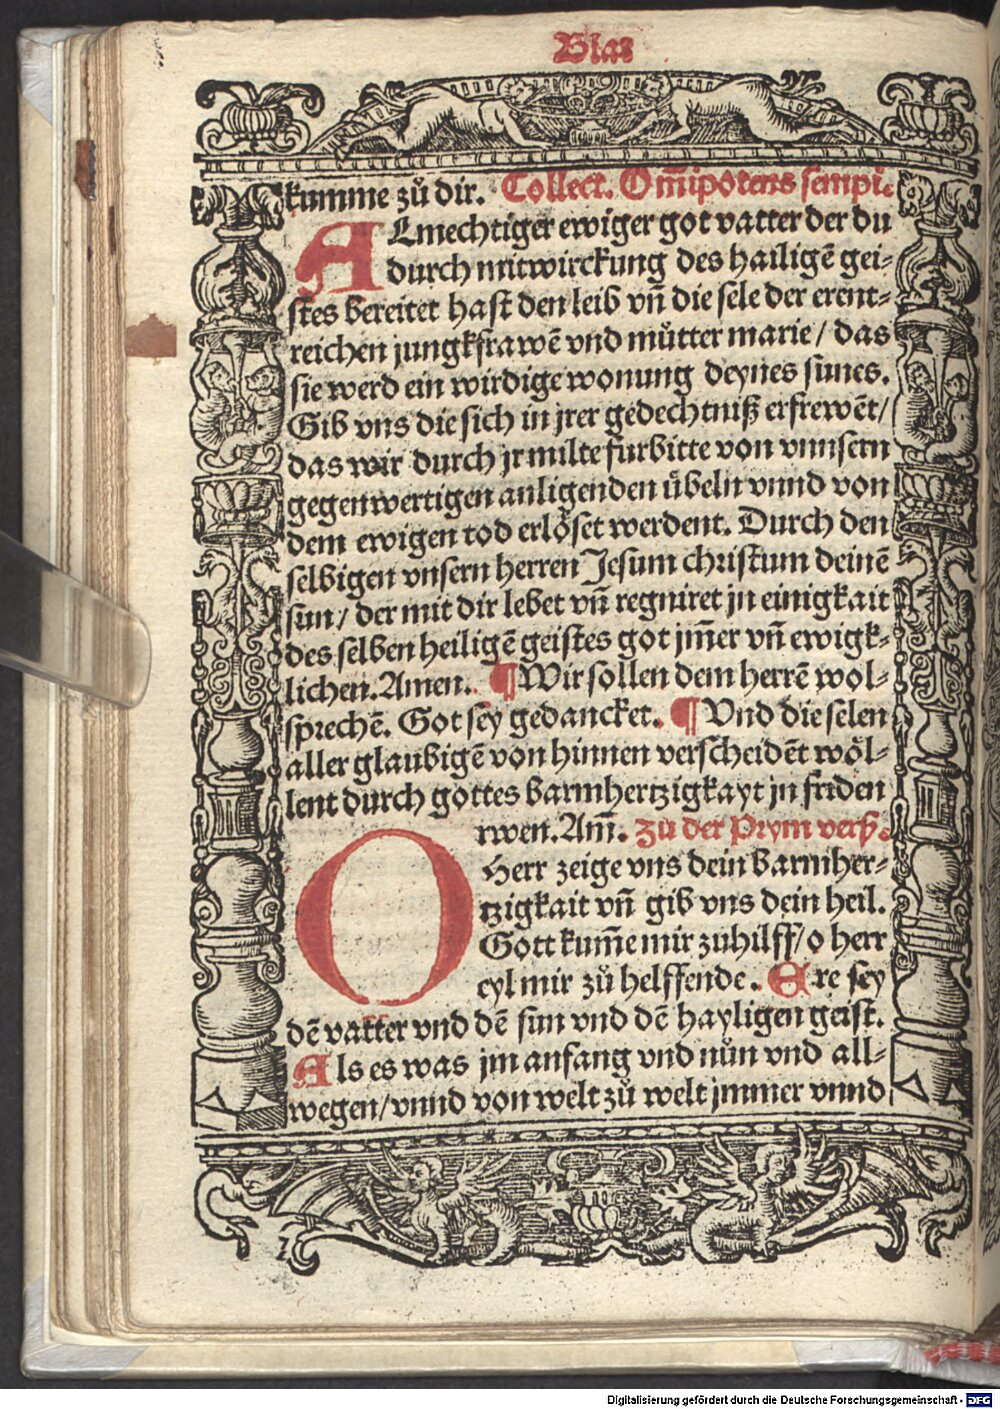 Blat
kumme zů dir. Collect. Om̄ipotens sempi.
ALmechtiger ewiger got vatter der du
durch mitwirckung des hailigē gei-
stes bereitet hast den leib vn̄ die sele der erent-
reichen jungkfrawē vnd můtter marie / das
sie werd ein wirdige wonung deynes sunes.
Gib vns die sich in jrer gedechtniß erfrewēt /
das wir durch jr milte furbitte von vnnsern
gegenwertigen anligenden úbeln vnnd von
dem ewigen tod erlőset werdent. Durch den
selbigen vnsern herren Jesum christum deinē
sun / der mit dir lebet vn̄ regniret jn einigkait
des selben heiligē geistes got jm̄er vn̄ ewigk-
lichen. Amen. ¶ Wir sollen dem herrē wol-
sprechē. Got sey gedancket. ¶ Vnd die selen
aller glaubigē von hinnen verscheidēt wöl-
lent durch gottes barmhertzigkayt jn friden
rwen. Am̄. Zů der Prym verß.
O Herr zeige vns dein barmher-
tzigkait vn̄ gib vns dein heil.
Gott kum̄e mir zuhilff / o herr
eyl mir zů helffende. Ere sey
dē vatter vnd dē sun vnd dē hayligen geist.
Als es was jm anfang vnd nůn vnd all-
wegen / vnnd von welt zů welt jmmer vnnd
Digitalisierung gefördert durch die Deutsche Forschungsgemeinschaft - DFG